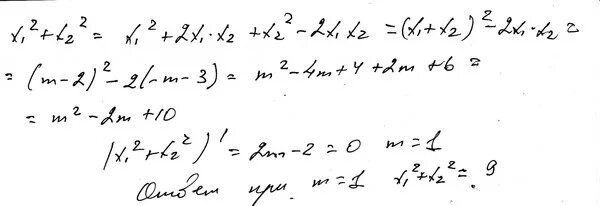 x₁² + x₂² = x₁² + 2x₁·x₂ + x₂² - 2x₁x₂ = (x₁+x₂)² - 2x₁·x₂ =
= (m-2)² - 2(-m-3) = m² - 4m + 4 + 2m + 6 =
= m² - 2m + 10
(x₁² + x₂²)' = 2m - 2 = 0 m = 1
Ответ при m = 1 x₁² + x₂² = 9